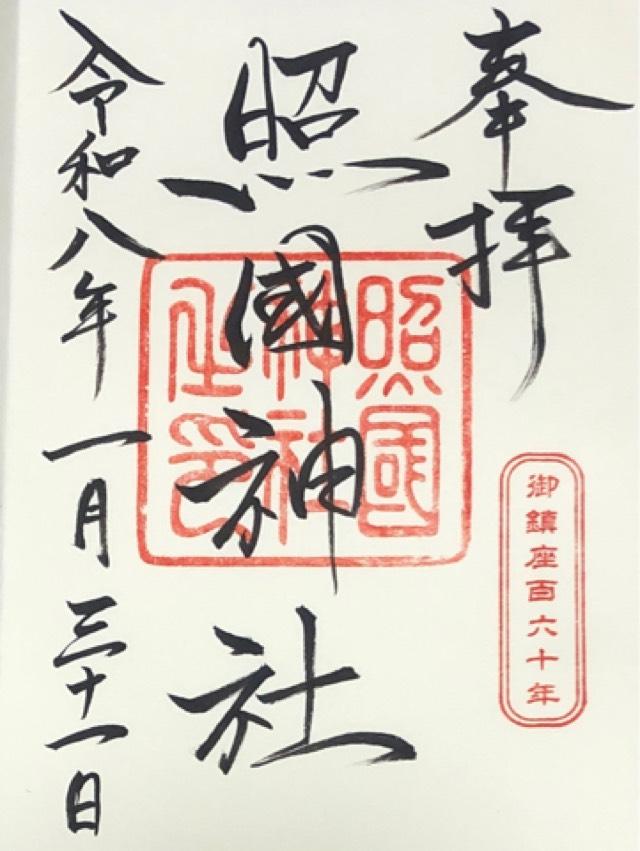 奉拝
御鎮座百六十年
照國神社
照國
神社
之印
令和八年 一月 三十一日